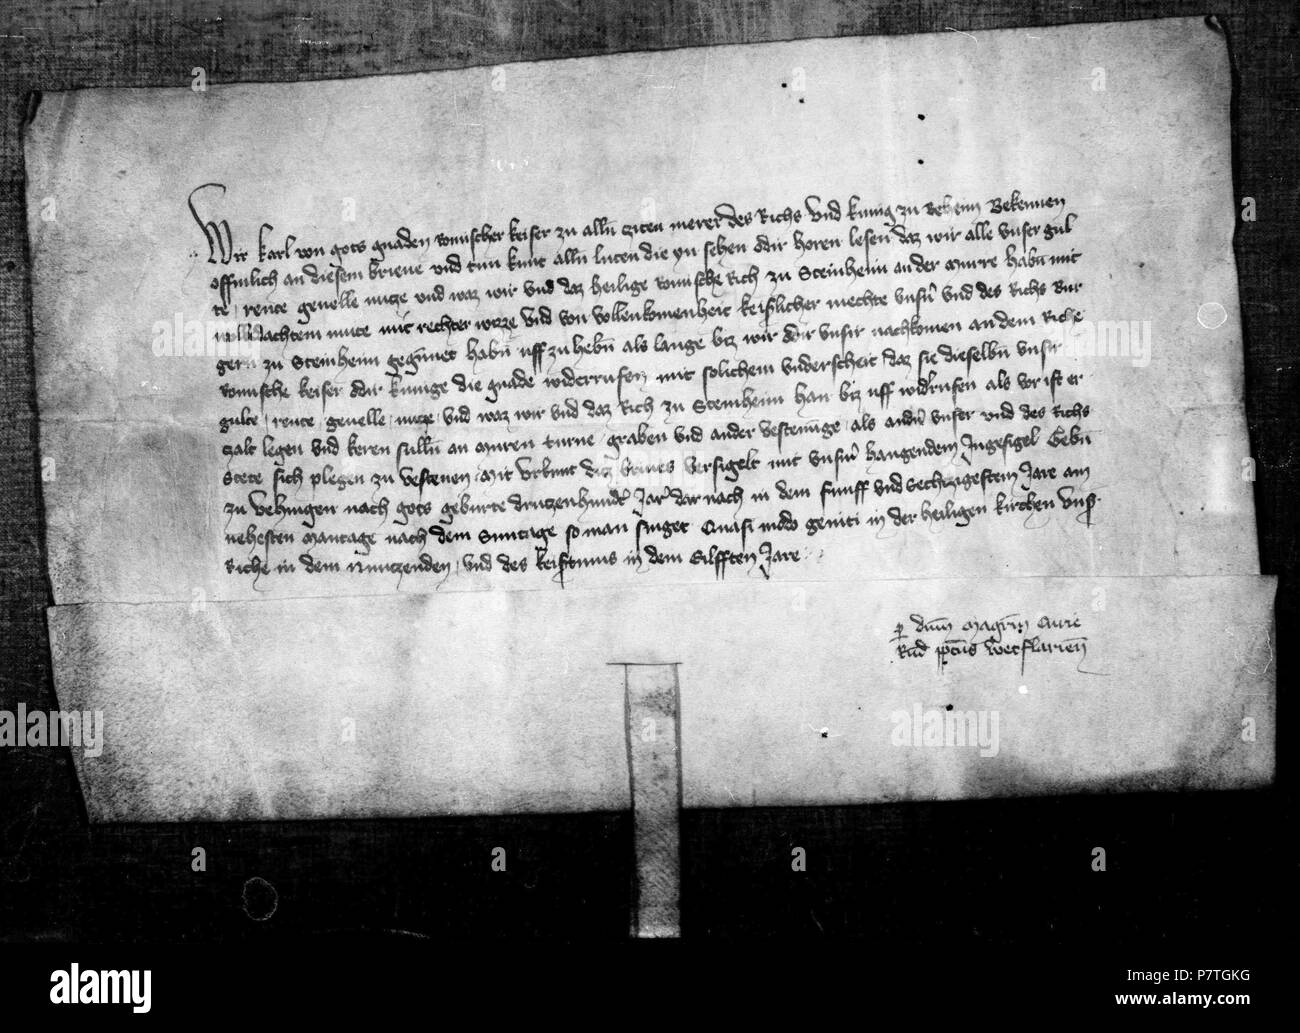 Wir Karl von gots gnaden Romischer keiser zu allen cziten merer des Richs und kunig zu Behem Bekennen
offinlich an diesem brieue vnd tun kunt allen luten die yn sehen odir horen lesen daz wir alle vnser gul
te, rente geuelle nucze vnd waz wir vnd daz heilige Romische Rich zu Steinheim an der Murre haben mit
wolbedachtem mute mit rechter wizze vnd von vollenkomenheit keiserlicher mechte vnsern vnd des Richs Bur
gern zu Steinheim gegunnet haben uff zu heben als lange biz wir odir vnsir nachkomen an dem Riche
Romische keiser odir kunige die gnade widerrufen mit solichem vnderscheit, daz sie dieselben vnsir
gulte, rente, geuelle, nucze, vnd waz wir vnd daz Rich zu Steinheim han biz uff widerrufen als vor ist er
czalt legen vnd keren sullen an muren turne, graben vnd ander vestenunge, als andern vnser vnd des Richs
Stete sich plegen zu vestenen, Mit vrkunt diz brieues versigelt mit vnserm hangendem Ingesigel Geben
zu Vehingen nach gots geburte druczenhundert Jar dar nach in dem funff vnd Sechzigestem Jare am
nehesten Mantage nach dem Suntage so man singet Quasi modo geniti in der heiligen kirchen vnser
Riche in dem Nunczenden, vnd des keisertums in dem Eilfften Jare
per dominum Magistrum Curie
Rud prepositus Wetflarien
alamy
a
alamy
Image ID: P7TGKG
www.alamy.com